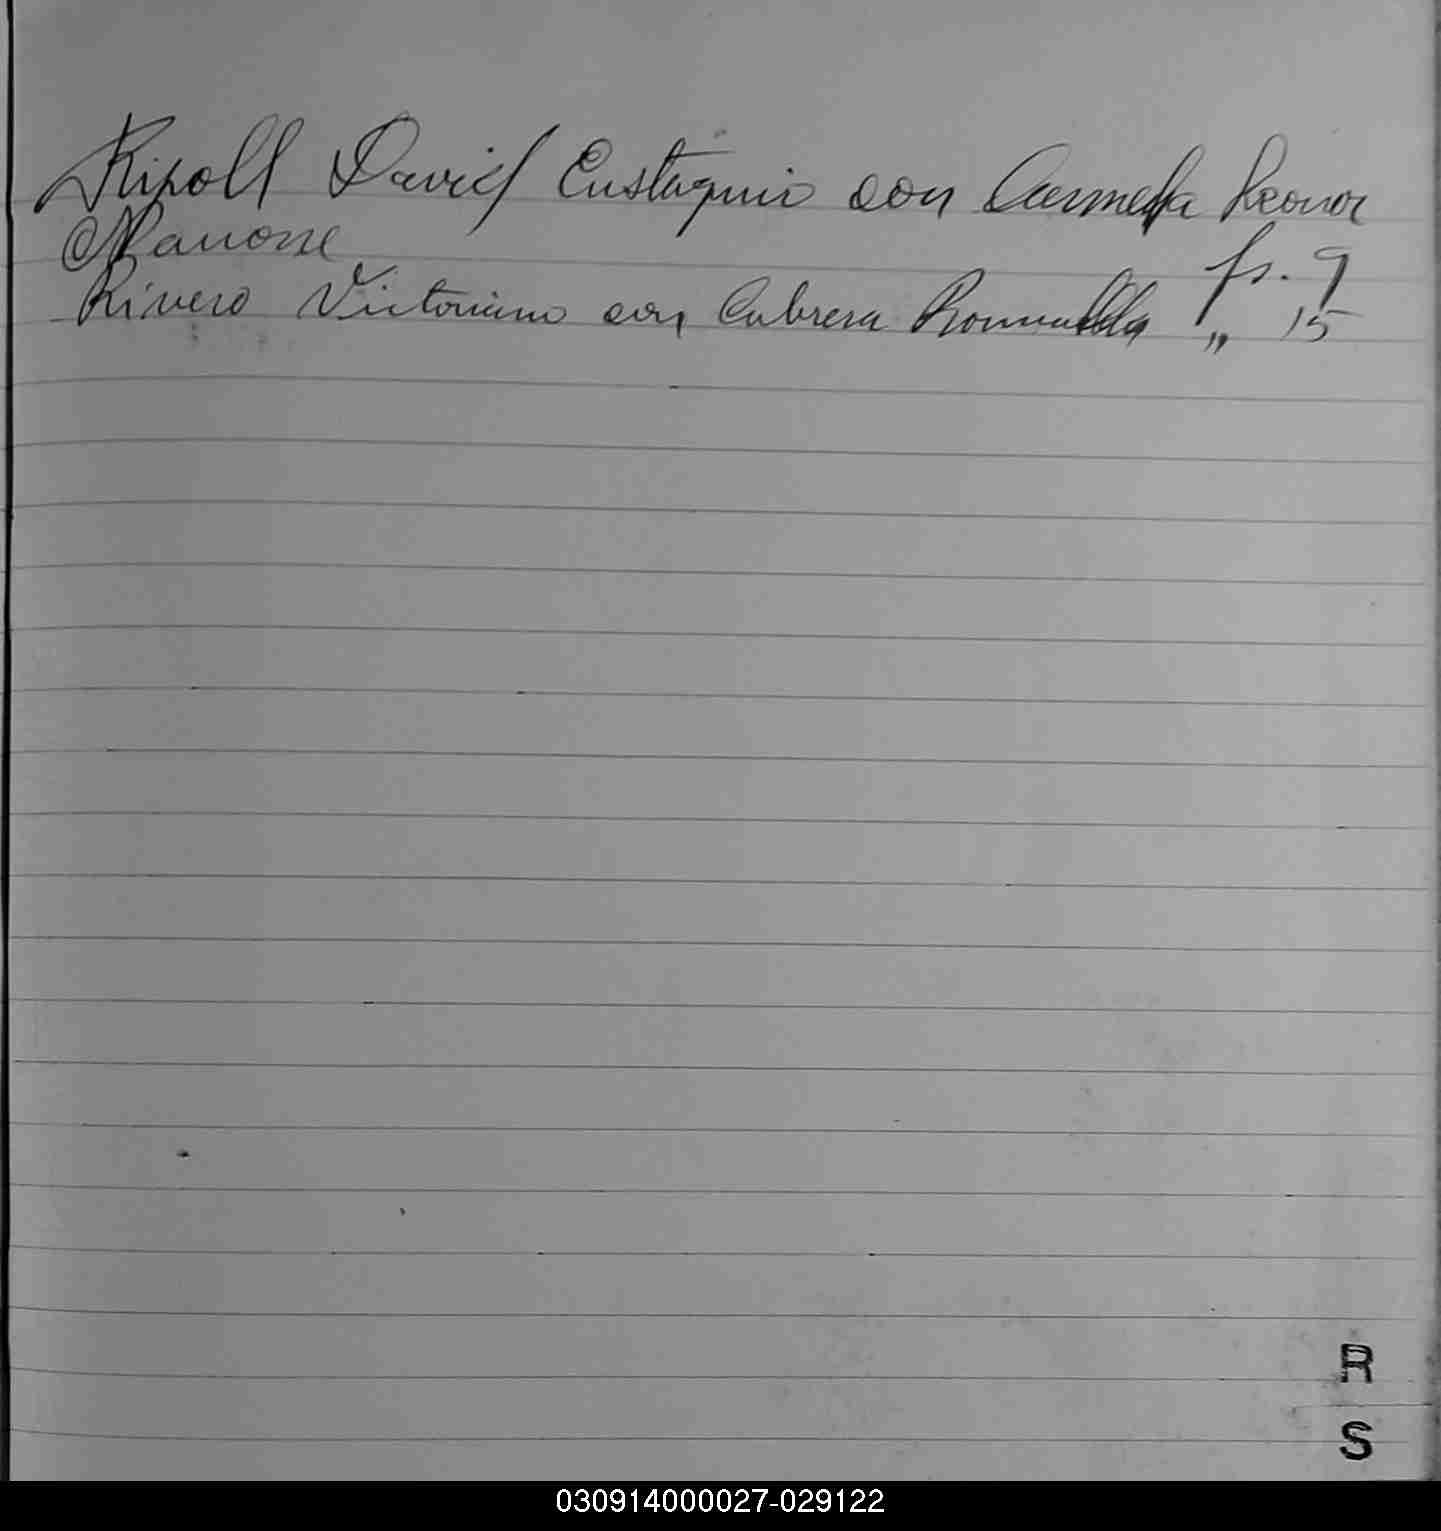 Ripoll David Eustaquio con Carmela Leonor
Manone fs. 9
Rivero Victoriano con Cabrera Romualda „ 15
R
S
030914000027-029122